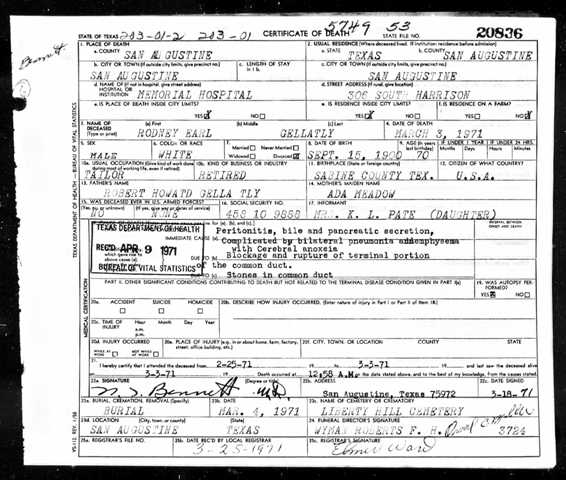 5749 53
STATE OF TEXAS 203-01-2 203-01 CERTIFICATE OF DEATH STATE FILE NO. 20836
Bennett
1. PLACE OF DEATH 2. USUAL RESIDENCE (Where deceased lived. If institution: residence before admission)
a. COUNTY SAN AUGUSTINE a. STATE TEXAS b. COUNTY SAN AUGUSTINE
b. CITY OR TOWN (If outside city limits, give precinct no.) c. LENGTH OF STAY in 1 b. c. CITY OR TOWN (If outside city limits, give precinct no.)
SAN AUGUSTINE SAN AUGUSTINE
d. NAME OF (If not in hospital, give street address) HOSPITAL OR INSTITUTION MEMORIAL HOSPITAL d. STREET ADDRESS (If rural, give location) 306 SOUTH HARRISON
e. IS PLACE OF DEATH INSIDE CITY LIMITS? e. IS RESIDENCE INSIDE CITY LIMITS? f. IS RESIDENCE ON A FARM?
YES NO YES NO YES NO
3. NAME OF DECEASED (Type or print) (a) First (b) Middle (c) Last 4. DATE OF DEATH
RODNEY EARL GELLATLY MARCH 3, 1971
5. SEX 6. COLOR OR RACE 7. Married Never Married Widowed Divorced 8. DATE OF BIRTH 9. AGE (In years last birthday) IF UNDER 1 YEAR Months Days IF UNDER 24 HRS. Hours Min.
MALE WHITE SEPT. 15, 1900 70
10a. USUAL OCCUPATION (Give kind of work done during most of working life, even if retired) 10b. KIND OF BUSINESS OR INDUSTRY 11. BIRTHPLACE (State or foreign country) 12. CITIZEN OF WHAT COUNTRY?
TAILOR RETIRED SABINE COUNTY TEX. U.S.A.
13. FATHER'S NAME 14. MOTHER'S MAIDEN NAME
ROBERT HOWATD GELLA TLY ADA MEADOW
15. WAS DECEASED EVER IN U.S. ARMED FORCES? 16. SOCIAL SECURITY NO. 17. INFORMANT
NO NONE 453 10 9868 MRS. K. L. PATE (DAUGHTER)
TEXAS DEPARTMENT OF HEALTH
REC'D APR 9 1971
BUREAU OF VITAL STATISTICS
INTERVAL BETWEEN ONSET AND DEATH
IMMEDIATE CAUSE (a) Peritonitis, bile and pancreatic secretion,
Complicated by bilateral pneumonia and emphysema
with Cerebral anoxeia
DUE TO (b) Blockage and rupture of terminal portion
of the common duct.
DUE TO (c) Stones in common duct
PART II. OTHER SIGNIFICANT CONDITIONS CONTRIBUTING TO DEATH BUT NOT RELATED TO THE TERMINAL DISEASE CONDITION GIVEN IN PART I(a) 19. WAS AUTOPSY PERFORMED?
YES NO
20a. ACCIDENT SUICIDE HOMICIDE 20b. DESCRIBE HOW INJURY OCCURRED. (Enter nature of injury in Part I or Part II of item 18.)
20c. TIME OF INJURY Hour Month Day Year
a.m.
p.m.
20d. INJURY OCCURRED WHILE AT WORK NOT WHILE AT WORK 20e. PLACE OF INJURY (e.g. in or about home, farm, factory, street, office building, etc.) 20f. CITY, TOWN, OR LOCATION COUNTY STATE
21. I hereby certify that I attended the deceased from 2-25-71 19 to 3-3-71 19 and last saw the deceased alive
on 3-3-71 19 Death occurred at 12:58 A.M. on the date stated above, and to the best of my knowledge, from the causes stated.
22a. SIGNATURE (Degree or title) 22b. ADDRESS 22c. DATE SIGNED
Bennett MD San Augustine, Texas 75972 3-18-71
23a. BURIAL, CREMATION, REMOVAL (Specify) 23b. DATE 23c. NAME OF CEMETERY OR CREMATORY
BURIAL MAR. 4, 1971 LIBERTY HILL CEMETERY
23d. LOCATION (City) (State) 24. FUNERAL DIRECTOR'S SIGNATURE
SAN AUGUSTINE TEXAS WYMAN ROBERTS F. H. 3724
25a. REGISTRAR'S FILE NO. 25b. DATE REC'D BY LOCAL REGISTRAR 25c. REGISTRAR'S SIGNATURE
3-25-1971 Elmer Ward
TEXAS DEPARTMENT OF HEALTH — BUREAU OF VITAL STATISTICS
MEDICAL CERTIFICATION
VS-112 REV. 1/58